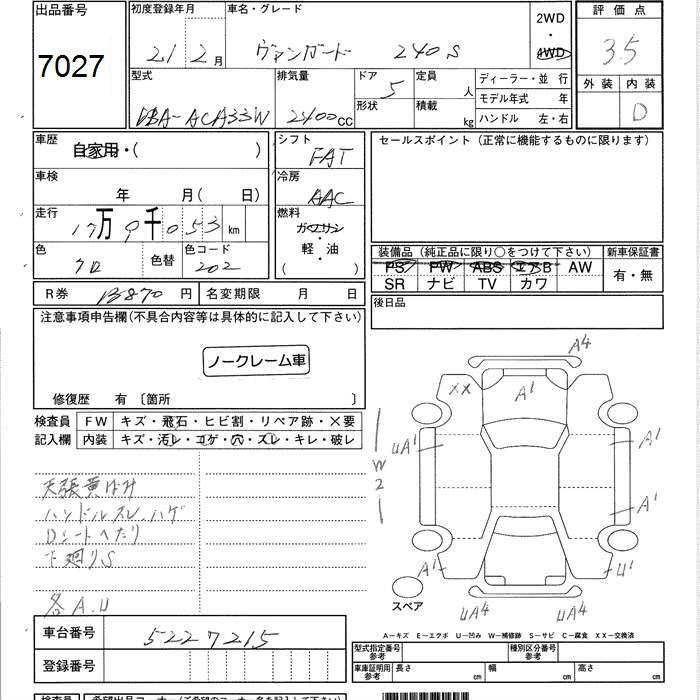 出品番号 初度登録年月 車名・グレード 評価点
7027 21 2月 ヴァンガード 240S 2WD・4WD 3.5
型式 排気量 ドア 定員 ディーラー・並行 外装 内装
DBA-ACA33W 2400cc 5 人 モデル年式 年 D
形状 積載 kg ハンドル 左・右
車歴 シフト セールスポイント(正常に機能するものに限ります)
自家用・( ) FAT
車検 冷房
年 月( 日) AAC
走行 燃料
17万9千053km ガソリン
軽・油
( )
色 色替 色コード 装備品(純正品に限り○をつけて下さい) 新車保証書
クロ 202 PS PW ABS エアB AW 有・無
SR ナビ TV カワ
R券 13870円 名変期限 月 日 後日品
注意事項申告欄(不具合内容等は具体的に記入して下さい)
ノークレーム車
修復歴 有〔箇所 〕
検査員 FW キズ・飛石・ヒビ割・リペア跡・×要
記入欄 内装 キズ・汚レ・コゲ・穴・スレ・キレ・破レ
天張黄ばみ
ハンドルスレ、ハゲ
Dシートへたり
下廻りS
各A.U
A4
XX A1
UA1 A1
W2
A1
A1 U1
スペア
UA4 UA4
A-キズ E-エクボ U-凹み W-補修跡 S-サビ C-腐食 XX-交換済
車台番号 5227215
登録番号
型式指定番号 参考 種別区分番号 参考
車庫証明用 参考 長さ cm 幅 cm 高さ cm
検査員 希望出品コーナー名